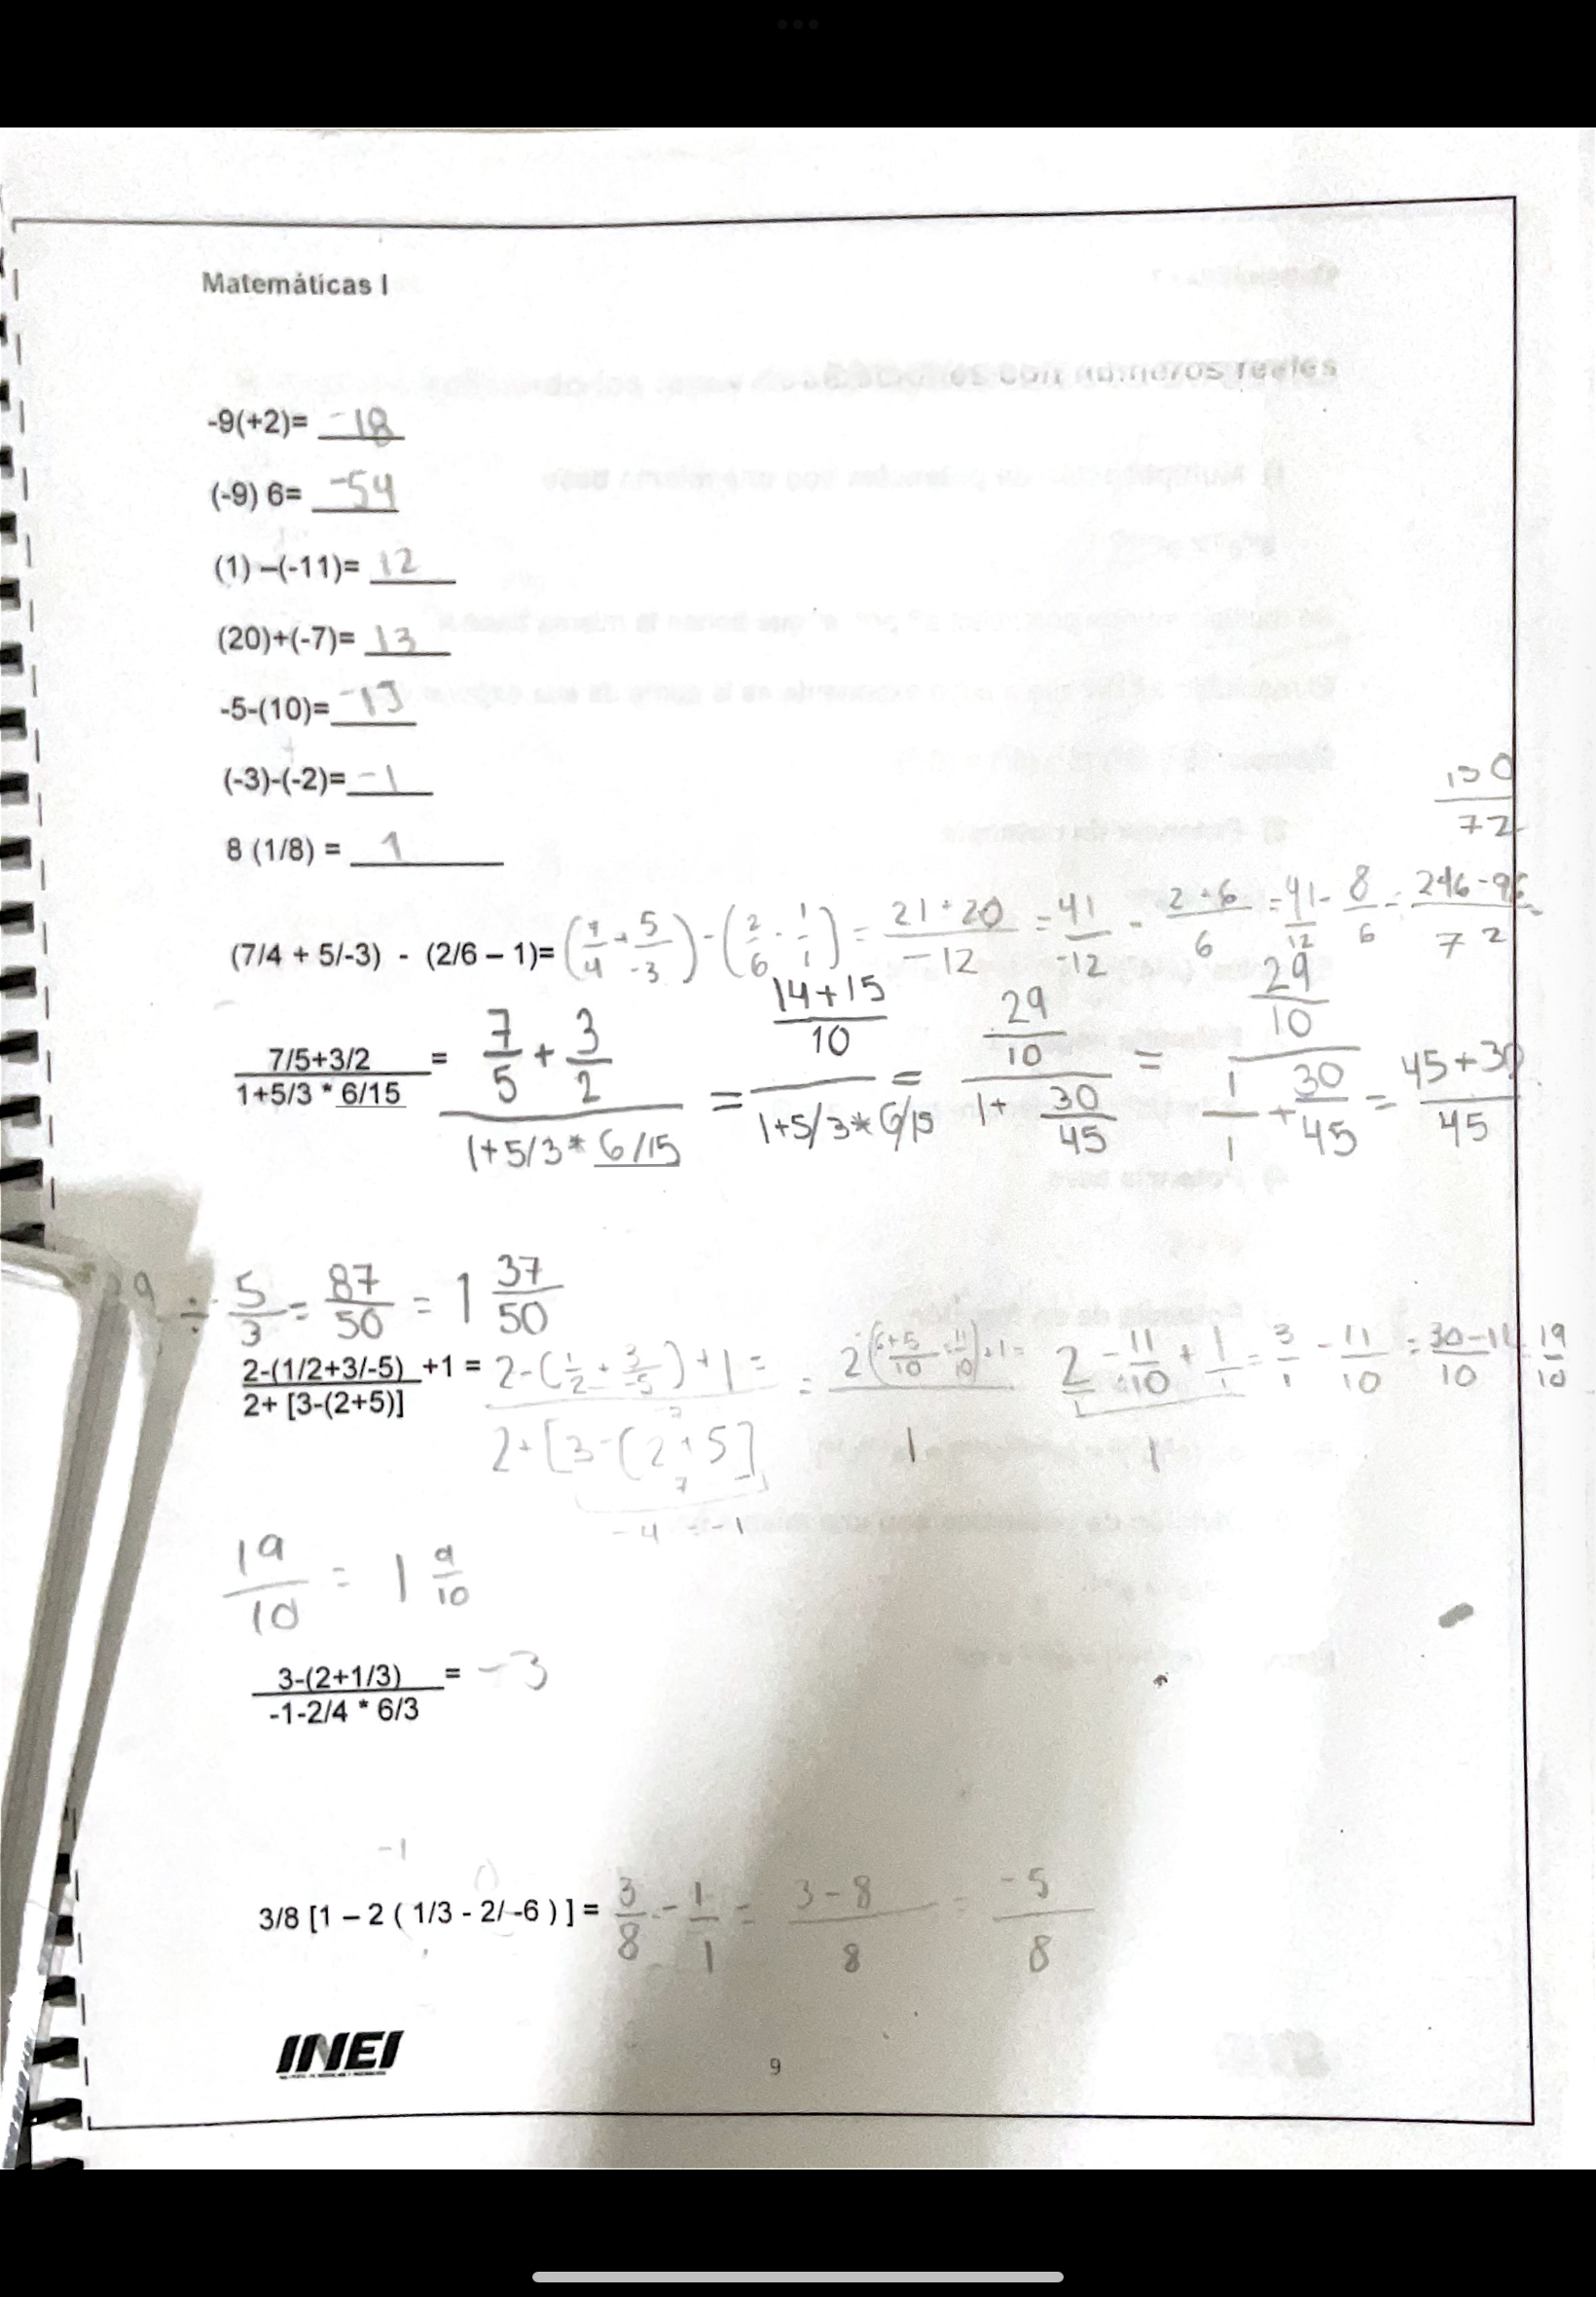 Matemáticas I
-9(+2)= -18
(-9) 6= -54
(1) –(-11)= 12
(20)+(-7)= 13
-5-(10)= -15
(-3)-(-2)= -1
8 (1/8) = 1
150/72
(7/4 + 5/-3) - (2/6 – 1)= (7/4 + 5/-3) - (2/6 - 1/1) = 21+20/-12 = 41/-12 - 2+6/6 = 41/12 - 8/6 = 246-96/72 =
7/5+3/2 / 1+5/3 * 6/15 = 7/5 + 3/2 / 1+5/3* 6/15 = 14+15/10 / 1+5/3* 6/15 = 29/10 / 1+ 30/45 = 29/10 / 1/1 + 30/45 = 45+30/45
÷ 5/3 = 87/50 = 1 37/50
2-(1/2+3/-5) +1 = 2-(1/2 + 3/-5) +1 = 2(6+5/10 = 11/10)+1= 2/1 - 11/10 + 1/1 = 3/1 - 11/10 = 30-11/10 19/10
2+ [3-(2+5)] 2+[3-(2+5] 1 1
7
-4 = -1
19/10 = 1 9/10
3-(2+1/3) / -1-2/4 * 6/3 = -3
-1 0
3/8 [1 – 2 ( 1/3 - 2/ -6 ) ] = 3/8 - 1/1 = 3-8/8 = -5/8
INEI
9